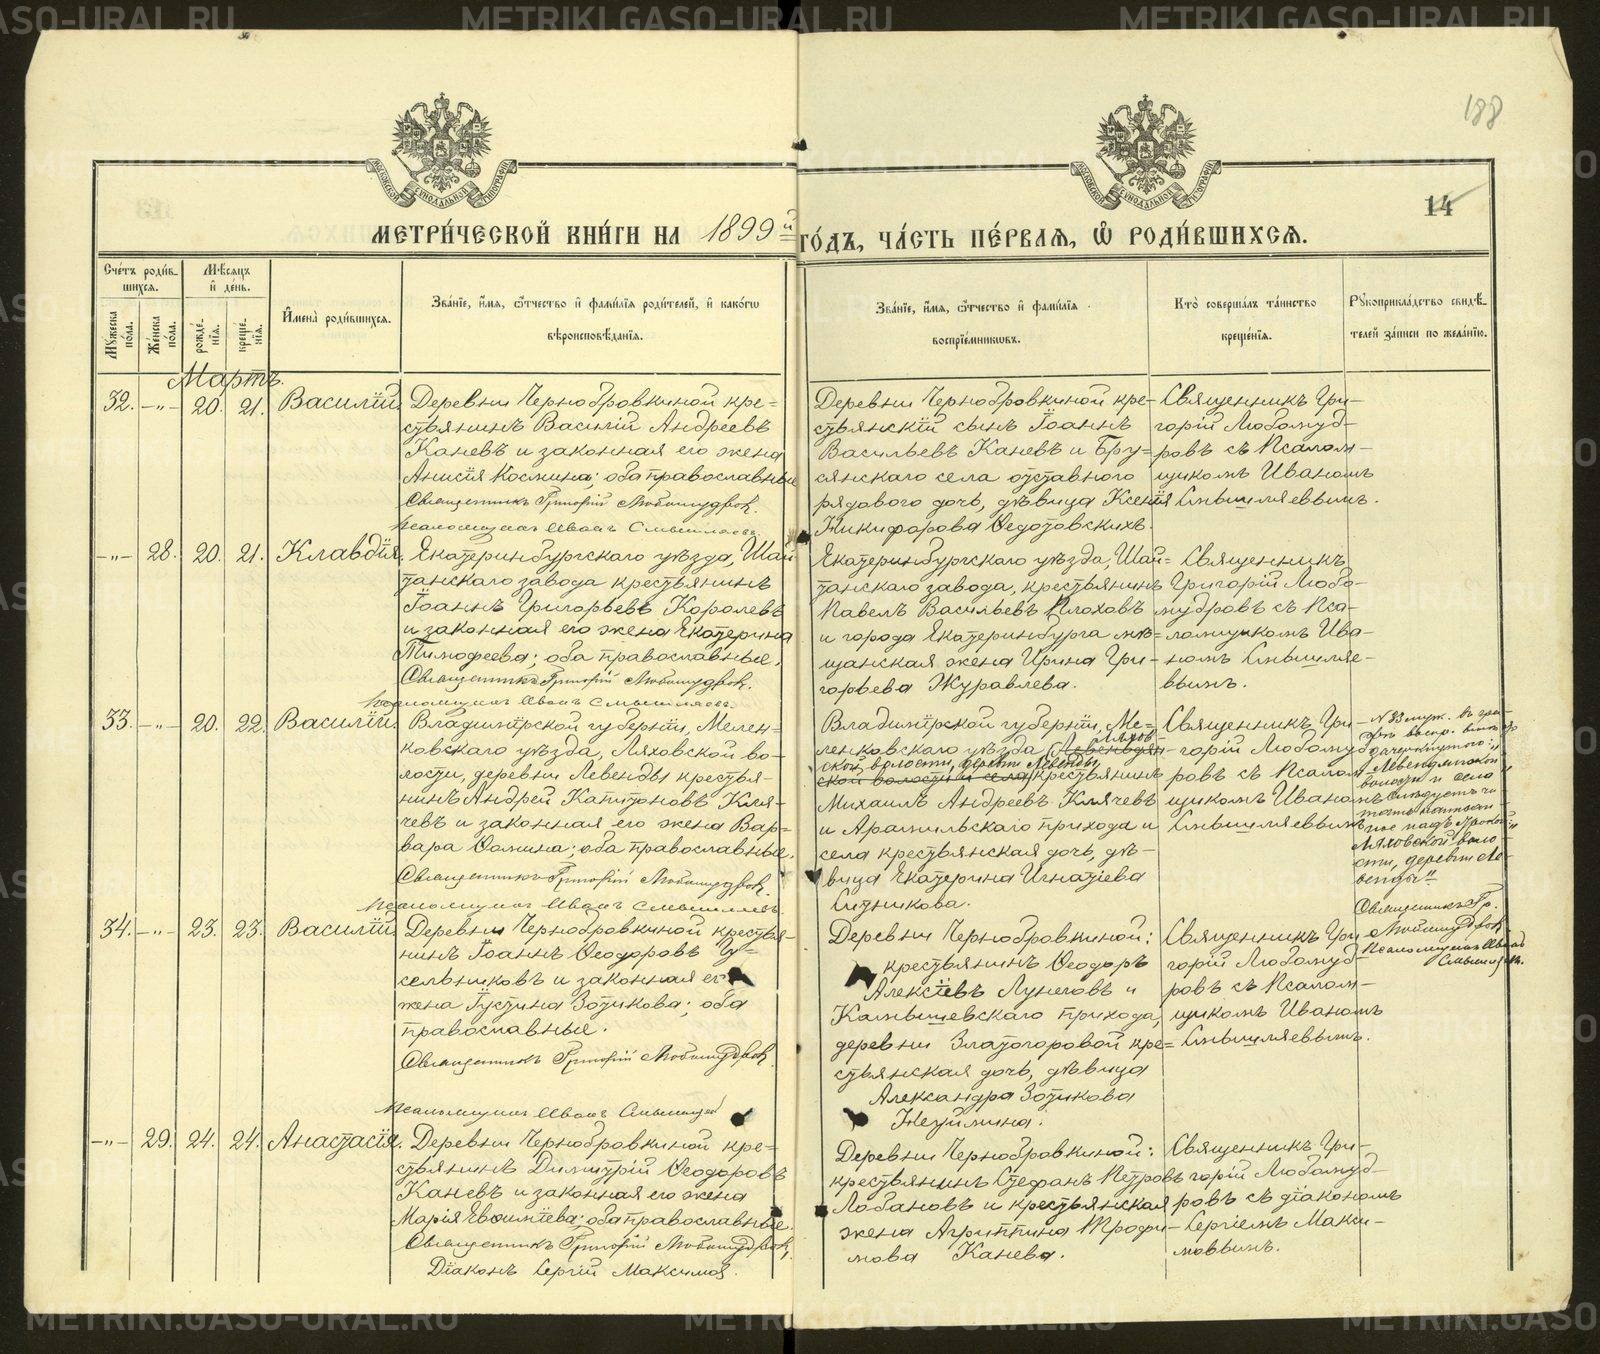 METRIKI.GASO-URAL.RU
188
14
МОСКОВСКОЙ СѴНОДАЛЬНОЙ ТИПОГРАФІИ
МОСКОВСКОЙ СѴНОДАЛЬНОЙ ТИПОГРАФІИ
МЕТРИ́ЧЕСКОЙ КНИ́ГИ НА 1899й ГО́ДЪ, ЧА́СТЬ ПЕ́РВАѦ, Ѽ РОДИ́ВШИХСѦ.
Сче́тъ роди́в-
шихсѧ.
Мꙋ́жеска по́ла.
Же́нска по́ла.
Мѣ́сѧцъ
и҆ де́нь.
рожде́-
нїѧ.
креще́-
нїѧ.
И҆мена̀ роди́вшихсѧ.
Зва́нїе, и҆́мѧ, ѻ҆́тчество и҆ фами́лїѧ роди́телей, и҆ како́гѡ
вѣроисповѣ́данїѧ.
Зва́нїе, и҆́мѧ, ѻ҆́тчество и҆ фами́лїѧ
воспрїе́мникѡвъ.
Кто̀ соверша́лъ та́инство
креще́нїѧ.
Рꙋкоприкла́дство свидѣ́-
телей за́писи по жела́нїю.
Мартъ.
32. -„- 20. 21. Василій.
Деревни Чернобровкиной кре-
стьянинъ Василій Андреевъ
Каневъ и законная его жена
Анисія Космина; оба православные
Священникъ Григорій Любомудровъ.
Псаломщикъ Иванъ Смышляевъ.
Деревни Чернобровкиной кре-
стьянскій сынъ Іоаннъ
Васильевъ Каневъ и Бру-
сянскаго села отставного
рядового дочь, дѣвица Ксенія
Никифорова Ѳедотовскихъ.
Священникъ Гри-
горій Любомуд-
ровъ съ Псалом-
щикомъ Иваномъ
Смышляевымъ.
-„- 28. 20. 21. Клавдія.
Екатеринбургскаго уѣзда, Шай-
танскаго завода крестьянинъ
Іоаннъ Григорьевъ Королевъ
и законная его жена Екатерина
Тимофеева; оба православные.
Священникъ Григорій Любомудровъ.
Псаломщикъ Иванъ Смышляевъ.
Екатеринбургскаго уѣзда, Шай-
танскаго завода, крестьянинъ
Павелъ Васильевъ Плоховъ
и города Екатеринбурга мѣ-
щанская жена Ирина Гри-
горьева Журавлева.
Священникъ
Григорій Любо-
мудровъ съ Пса-
ломщикомъ Ива-
номъ Смышляе-
вымъ.
33. -„- 20. 22. Василій.
Владимірской губерніи, Мелен-
ковскаго уѣзда, Ляховской во-
лости, деревни Левенды крестья-
нинъ Андрей Капитоновъ Кля-
чевъ и законная его жена Вар-
вара Ѳомина; оба православные.
Священникъ Григорій Любомудровъ.
Псаломщикъ Иванъ Смышляевъ.
Владимірской губерніи, Ме-
ленковскаго уѣзда, Левендян- Ляхов-
ской волости, деревни Левенды,
ской волости и села крестьянинъ
Михаилъ Андреевъ Клячевъ
и Арамильскаго прихода и
села крестьянская дочь, дѣ-
вица Екатерина Игнатіева
Ситникова.
Священникъ Гри-
горій Любомуд-
ровъ съ Псалом-
щикомъ Иваномъ
Смышляевымъ.
№ 33 муж. въ гра-
Левендянской
волости и села
слѣдуетъ чи-
тать написан-
ное надъ строкой:
„Ляховской воло-
сти, деревни Ле-
венды"
Священникъ Гр.
Любомудровъ
Псаломщикъ Иванъ
Смышляевъ.
34. -„- 23. 23. Василій.
Деревни Чернобровкиной крестья-
нинъ Іоаннъ Ѳеодоровъ Гу-
сельниковъ и законная его
жена Іустина Зотикова; оба
православные.
Священникъ Григорій Любомудровъ.
Псаломщикъ Иванъ Смышляевъ
Деревни Чернобровкиной:
крестьянинъ Ѳеодоръ
Алексіевъ Лунеговъ и
Камышевскаго прихода,
деревни Златогоровой кре-
стьянская дочь, дѣвица
Александра Зотикова
Неуймина.
Священникъ Гри-
горій Любомуд-
ровъ съ Псалом-
щикомъ Иваномъ
Смышляевымъ.
-„- 29. 24. 24. Анастасія.
Деревни Чернобровкиной кре-
стьянинъ Димитрій Ѳеодоровъ
Каневъ и законная его жена
Марія Евѳиміева; оба православные.
Священникъ Григорій Любомудровъ.
Діаконъ Сергій Максимов.
Деревни Чернобровкиной:
крестьянинъ Стефанъ Петровъ
Лобановъ и крестьянская
жена Агриппина Трофи-
мова Канева.
Священникъ Гри-
горій Любомуд-
ровъ съ діакономъ
Сергіемъ Макси-
мовымъ.